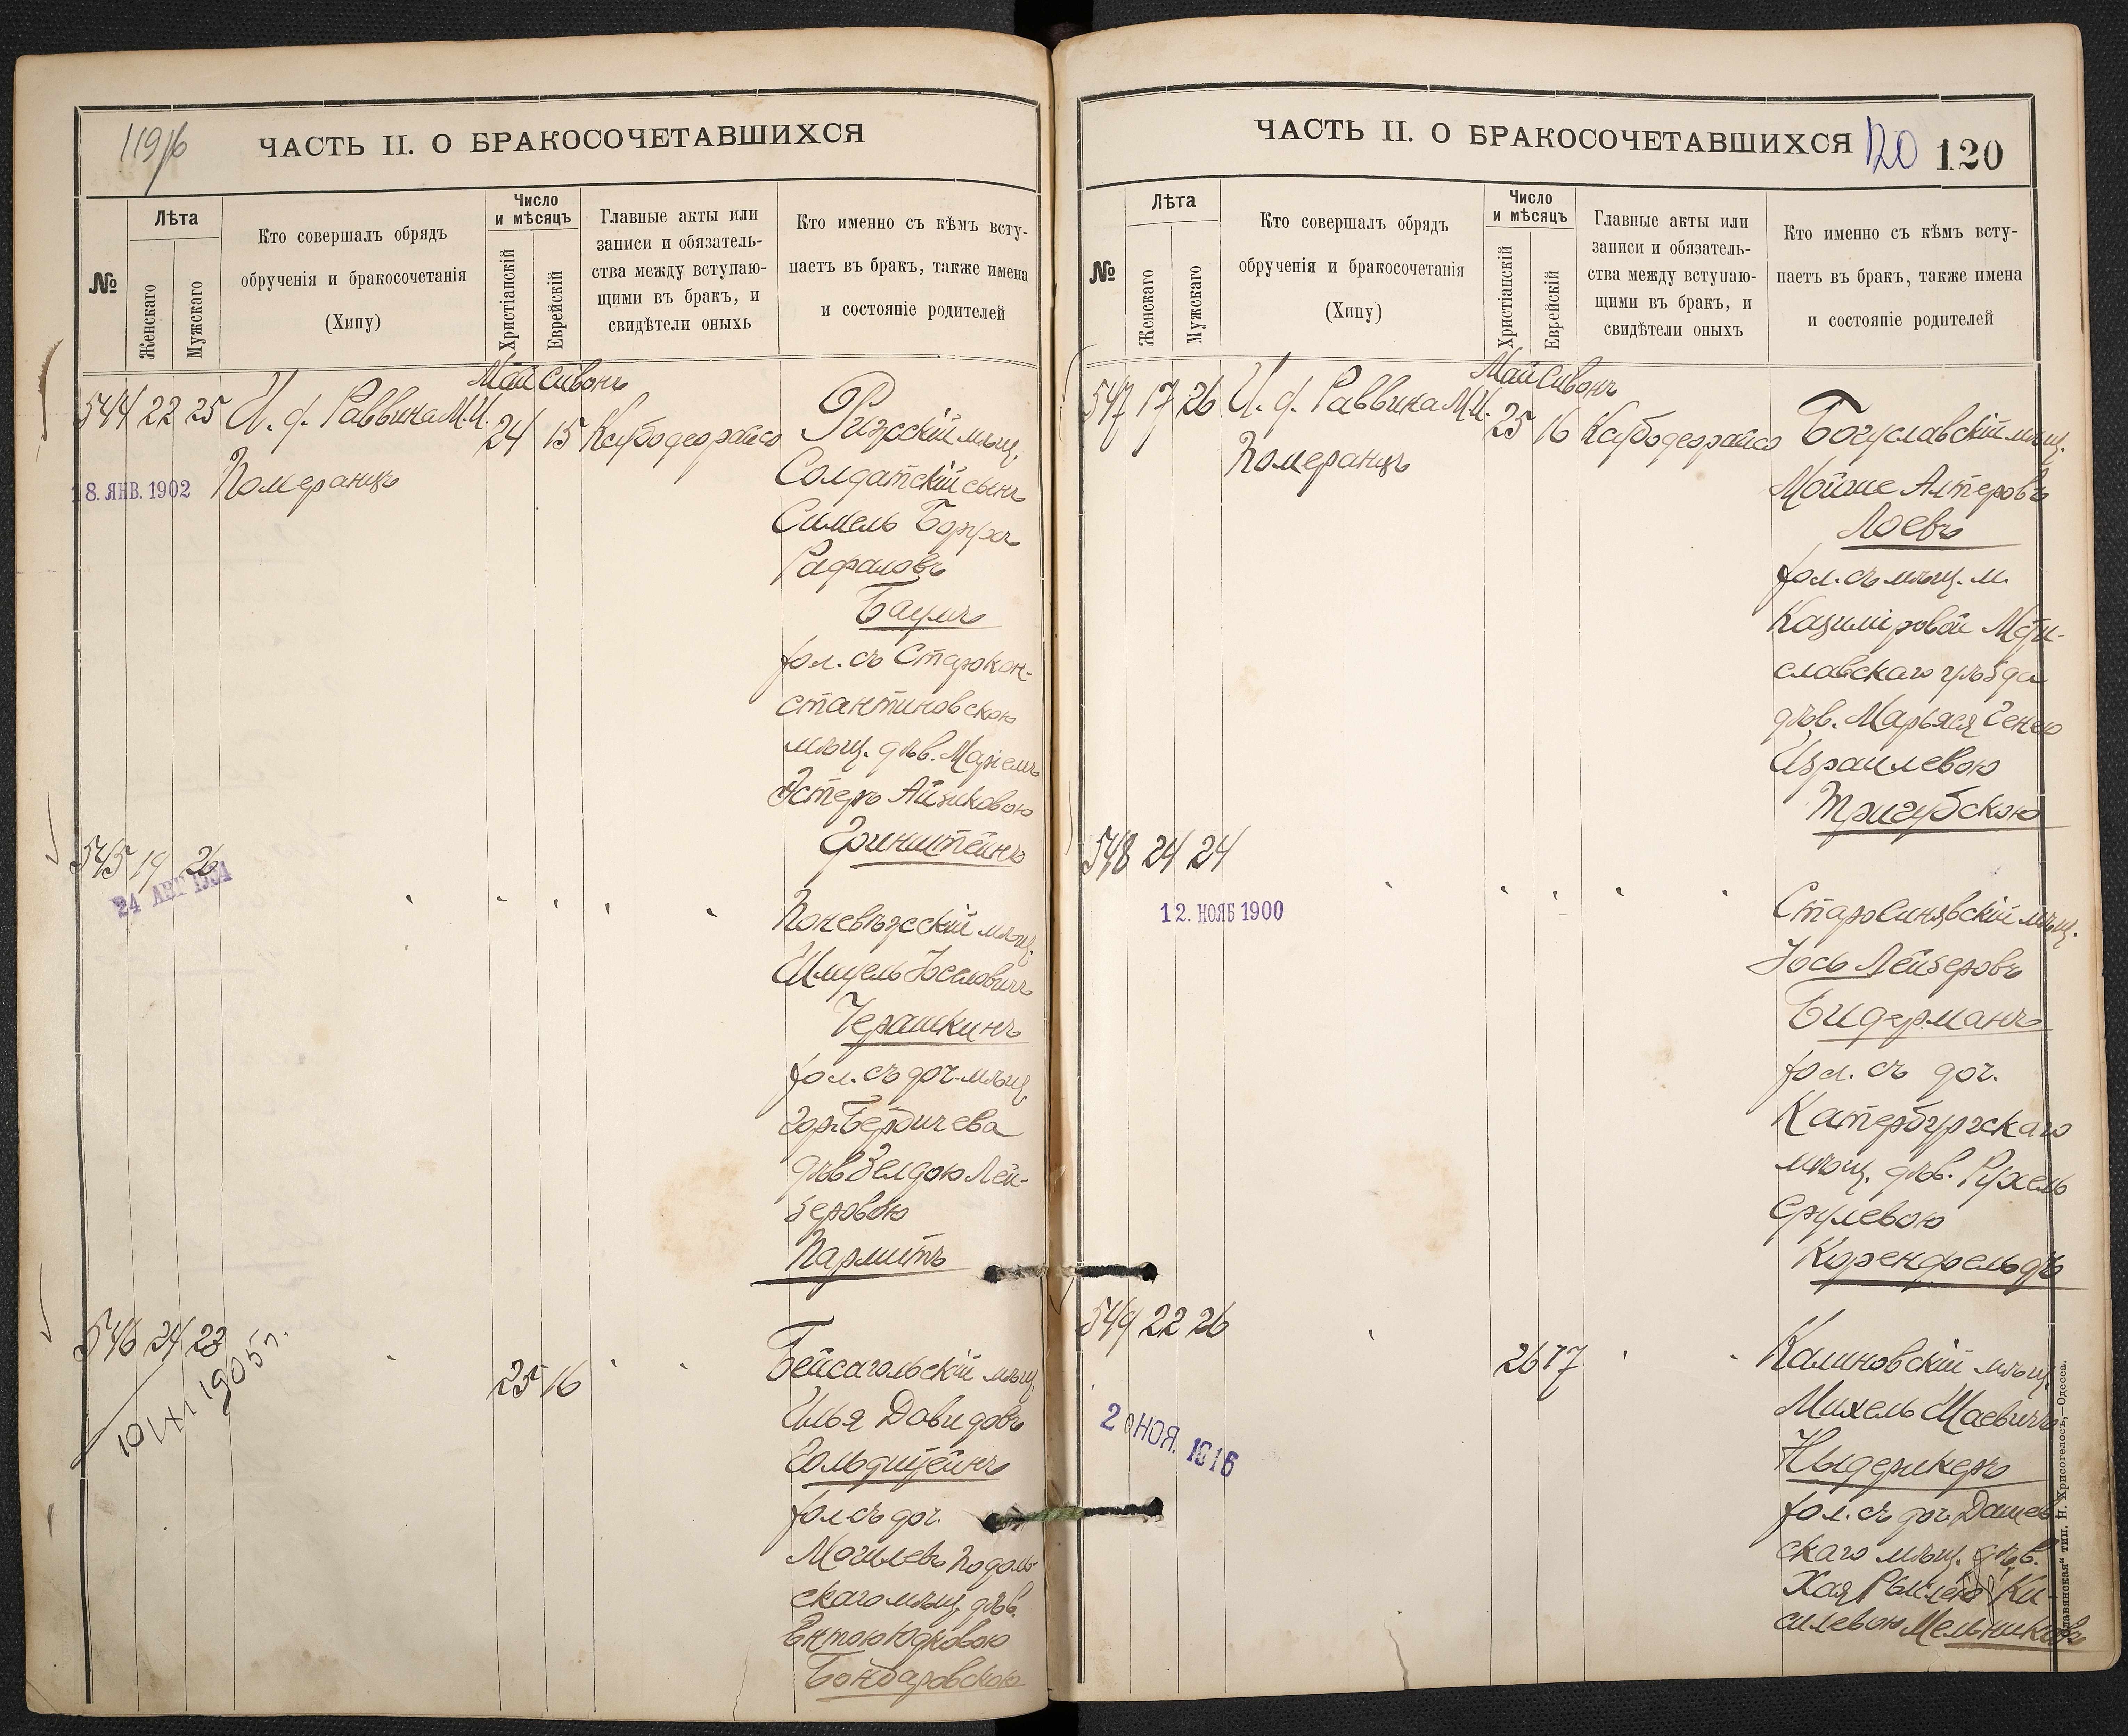 119/16
ЧАСТЬ II. О БРАКОСОЧЕТАВШИХСЯ
№
Лѣта
Женскаго
Мужскаго
Кто совершалъ обрядъ
обрученія и бракосочетанія
(Хипу)
Число
и мѣсяцъ
Христіанскій
Еврейскій
Главные акты или
записи и обязатель-
ства между вступаю-
щими въ бракъ, и
свидѣтели оныхъ
Кто именно съ кѣмъ всту-
паетъ въ бракъ, также имена
и состояніе родителей
Май Сивонъ
544 22 25 И. д. Раввина М.И.
Померанцъ
24 15
18. ЯНВ. 1902
мѣщ.
Солдатскій сынъ
Симель Борух
Рафаловъ
Баумъ
хол. съ Старокон-
стантиновскою
мѣщ. дѣв. Маріемъ
Эстеръ Айзиковою
Гринштейнъ
545 19 26
24 АВГ
Поневѣжскій мѣщ.
Шмуель Іоселовичъ
Черашкинъ
хол. съ доч. мѣщ.
гор. Бердичева
дѣв Зелдою Лей-
зеровою
Пармитъ
546 24 23
10/XI 1905 г.
25 16
Бейсагольскій мѣщ.
Илья Давидовъ
Гольдштейнъ
хол съ доч.
Могилевъ Подоль-
скаго мѣщ. дѣв.
Ентою Юдковою
Бондаровскою
ЧАСТЬ II. О БРАКОСОЧЕТАВШИХСЯ
120 120
№
Лѣта
Женскаго
Мужскаго
Кто совершалъ обрядъ
обрученія и бракосочетанія
(Хипу)
Число
и мѣсяцъ
Христіанскій
Еврейскій
Главные акты или
записи и обязатель-
ства между вступаю-
щими въ бракъ, и
свидѣтели оныхъ
Кто именно съ кѣмъ всту-
паетъ въ бракъ, также имена
и состояніе родителей
Май Сивонъ
547 17 26 И. д. Раввина М.И.
Померанцъ
25 16
Богуславскій мѣщ.
Мойше Алтеровъ
Лоевъ
хол. съ мѣщ. м.
Казиміровой Мсти-
славскаго уѣзда
дѣв. Марьяся Генею
Израилевою
Тригубскою
548 24 24
12. НОЯБ 1900
СтароСинявскій мѣщ.
Іось Лейзеровъ
Бидерманъ
хол. съ доч.
Катербургскаго
мѣщ. дѣв. Рухель
Срулевою
Коренфельдъ
549 22 26
2 НОЯ. 1916
26 17
Калиновскій мѣщ.
Михель Шаевичъ
Ныдерикеръ
хол. съ доч. Дашев-
скаго мѣщ. дѣв.
Хая Рыслею Ки-
силевою Мельниковъ
лавянская“ тип. Н. Хрисогелосъ,—Одесса.